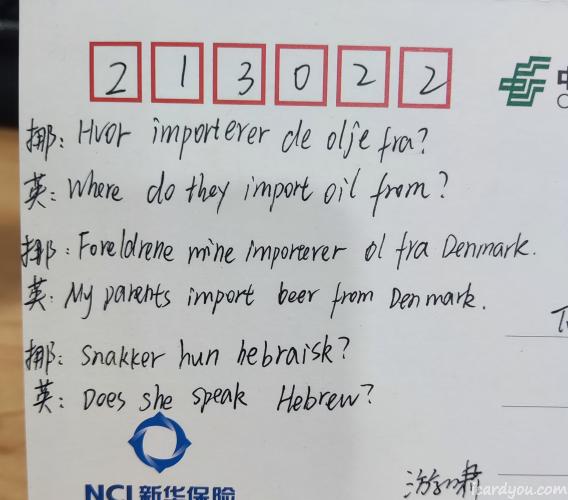 213022
挪: Hvor importerer de olje fra?
英: Where do they import oil from?
挪: Foreldrene mine importerer øl fra Denmark.
英: My parents import beer from Denmark.
挪: Snakker hun hebraisk?
英: Does she speak Hebrew?
NCI 新华保险
icardyou.com